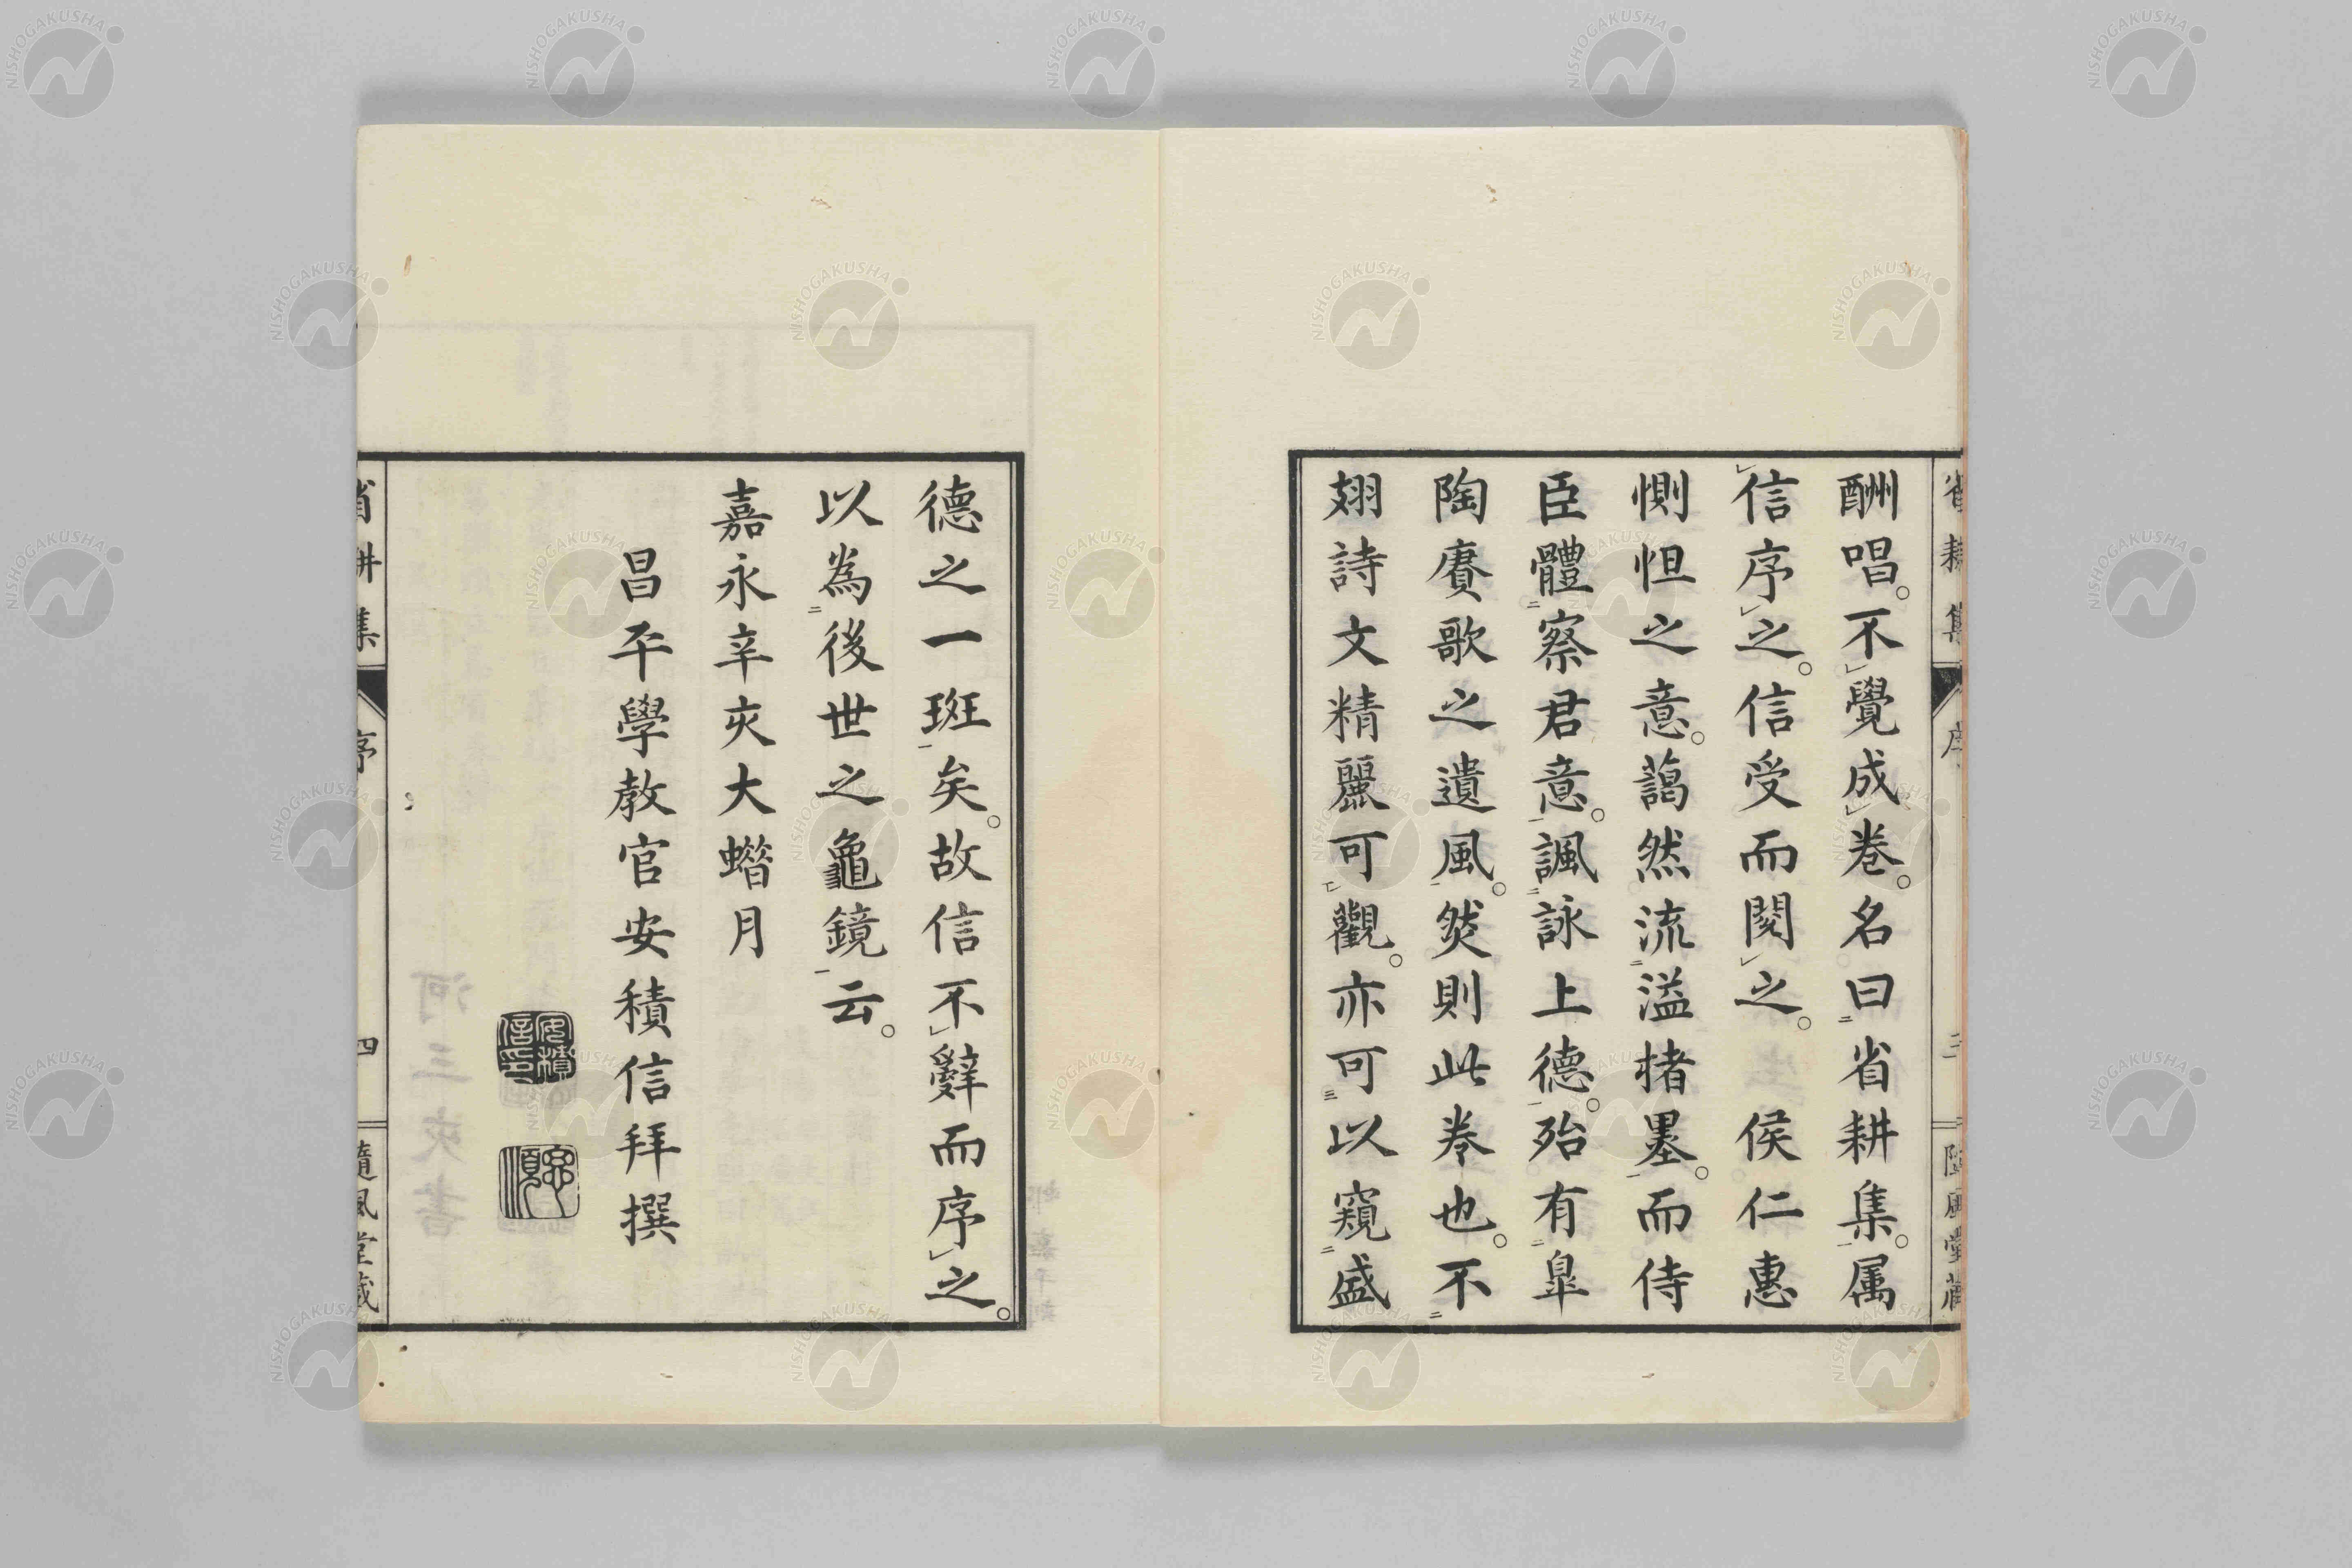 酬唱。不覺成卷。名曰省耕集。属
信序之。信受而閱之。 侯仁惠
惻怛之意。藹然流溢楮墨。而侍
臣體察君意。諷詠上德。殆有皐
陶賡歌之遺風。然則此卷也。不
翅詩文精麗可觀。亦可以窺盛
德之一斑矣。故信不辭而序之。
以為後世之龜鏡云。
嘉永辛亥大蜡月
昌平學教官安積信拜撰
省耕集
序
四
隨風堂藏
NISHOGAKUSHA